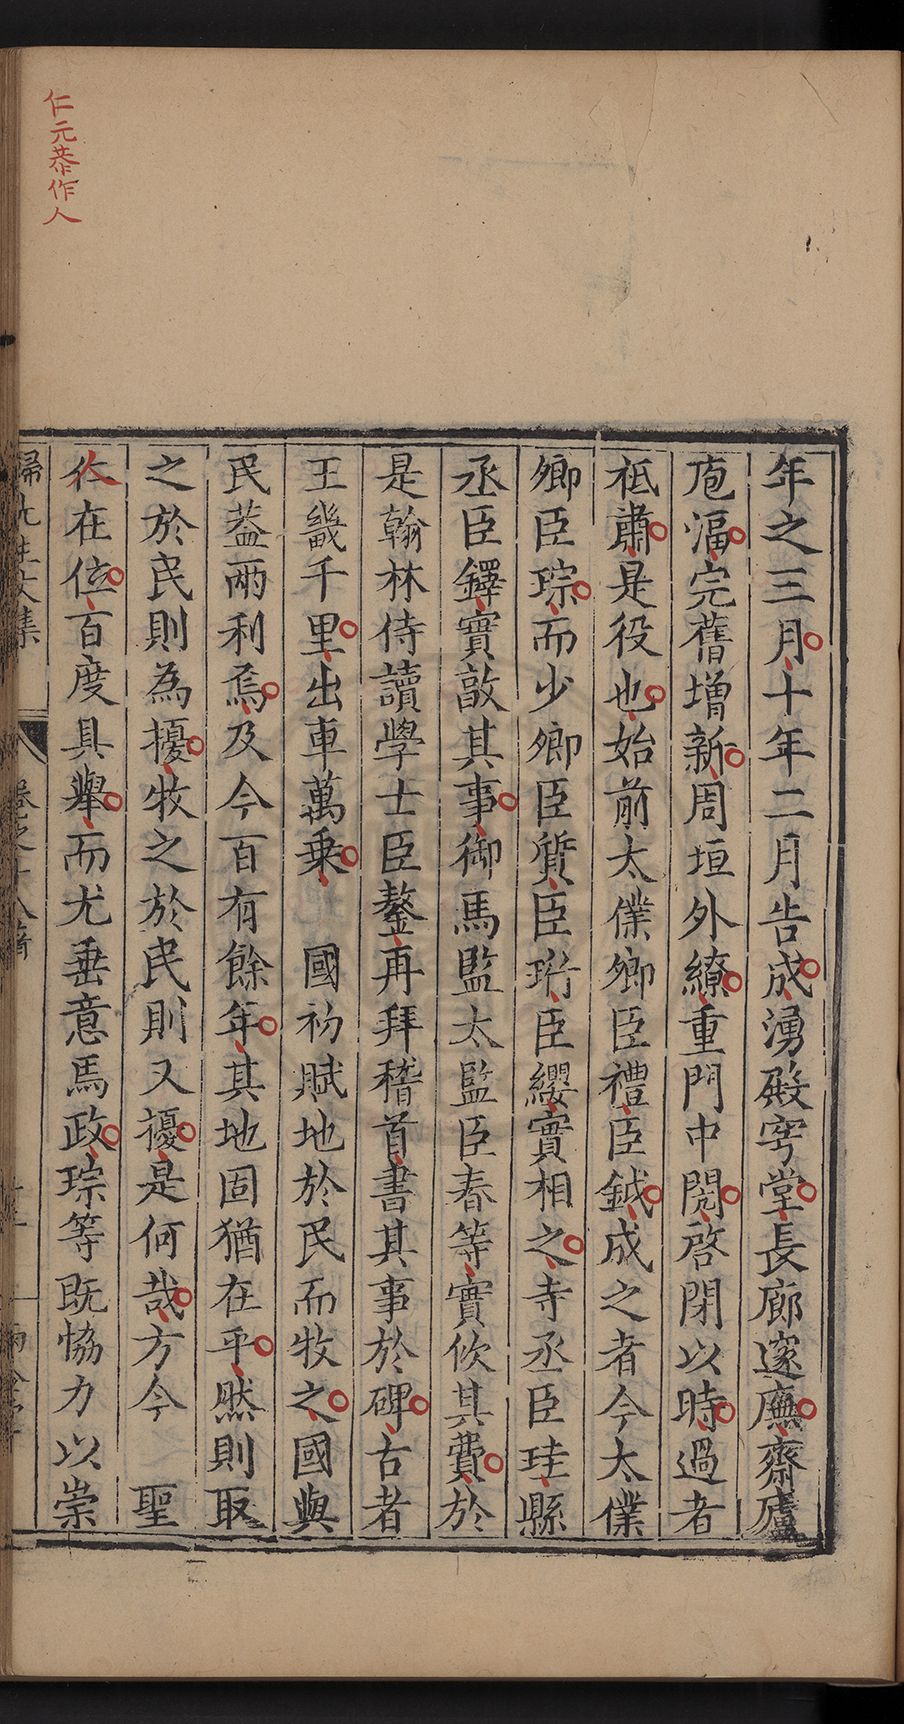 年之三月十年二月告成湧殿穹堂長廊邃廡齋廬
庖湢完舊增新周垣外繚重門中閱啓閉以時過者
祗肅是役也始前太僕卿臣禮臣鉞成之者今太僕
卿臣琮而少卿臣質臣珩臣纓實相之寺丞臣珪縣
丞臣鐸實敦其事御馬監太監臣春等實佽其費於
是翰林侍讀學士臣鏊再拜稽首書其事於碑古者
王畿千里出車萬乗 國初賦地於民而牧之國與
民蓋兩利焉及今百有餘年其地固猶在乎然則取
之於民則為擾牧之於民則又擾是何哉方今 聖
人在位百度具舉而尤垂意馬政琮等既恊力以崇
仁元恭作人